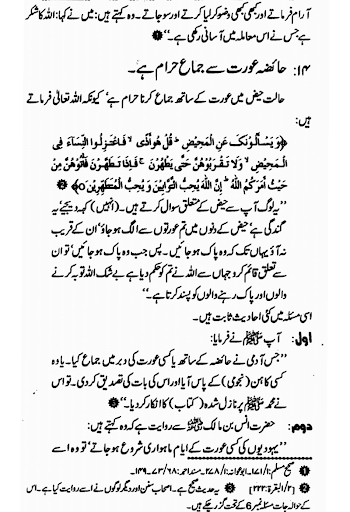 آرام فرماتے اور کبھی کبھی وضو کر لیا کرتے اور سو جاتے۔ وہ کہتے ہیں: میں نے کہا: اللہ کا شکر
ہے جس نے اس معاملہ میں آسانی رکھی ہے۔“ ❶
۱۴: حائضہ عورت سے جماع حرام ہے۔
حالت حیض میں عورت کے ساتھ جماع کرنا حرام ہے‘ کیونکہ اللہ تعالیٰ فرماتے
ہیں:
﴿وَيَسْأَلُونَكَ عَنِ الْمَحِيضِ ۖ قُلْ هُوَ أَذًى ۙ فَاعْتَزِلُوا النِّسَاءَ فِي
الْمَحِيضِ ۙ وَلَا تَقْرَبُوهُنَّ حَتَّى يَطْهُرْنَ ۚ فَإِذَا تَطَهَّرْنَ فَأْتُوهُنَّ مِنْ
حَيْثُ أَمَرَكُمُ اللَّهُ ۚ إِنَّ اللَّهَ يُحِبُّ التَّوَّابِينَ وَيُحِبُّ الْمُتَطَهِّرِينَ﴾ ❷
”یہ لوگ آپ سے حیض کے متعلق سوال کرتے ہیں۔ (انہیں) کہہ دیجئے‘ یہ
گندگی ہے‘ حیض کے دنوں میں تم عورتوں سے الگ ہو جاؤ‘ ان کے قریب
نہ آؤ یہاں تک کہ وہ پاک ہو جائیں۔ پس جب وہ پاک ہو جائیں‘ تو ان
سے تعلق قائم کرو جہاں سے اللہ نے تم کو حکم دیا ہے بے شک اللہ توبہ کرنے
والوں اور پاک رہنے والوں کو پسند کرتا ہے۔“
اسی مسئلہ میں کئی احادیث ثابت ہیں۔
اول: آپ ﷺ نے فرمایا:
”جس آدمی نے حائضہ کے ساتھ یا کسی عورت کی دبر میں جماع کیا۔ یا وہ
کسی کاہن (نجومی) کے پاس آیا اور اس کی بات کی تصدیق کر دی۔ تو اس
نے محمد ﷺ پر نازل شدہ (کتاب) کا انکار کر دیا۔“ ❸
دوم: حضرت انس بن مالک سے روایت ہے کہ وہ کہتے ہیں:
”یہودیوں کی کسی عورت کے ایام ماہواری شروع ہو جاتے‘ تو وہ اسے
❶ صحیح مسلم: ۱/۱۷۱۔ ابو عوانہ: ۱/۲۷۸۔ مسند احمد: ۶/۷۳، ۱۴۹۔
❷ [۲/البقرۃ: ۲۲۲] ❸ یہ حدیث صحیح ہے۔ اصحاب سنن اور دیگر لوگوں نے اسے روایت کیا ہے۔ اس
کے حوالہ جات مسئلہ نمبر 6 کے تحت گزر چکے ہیں۔